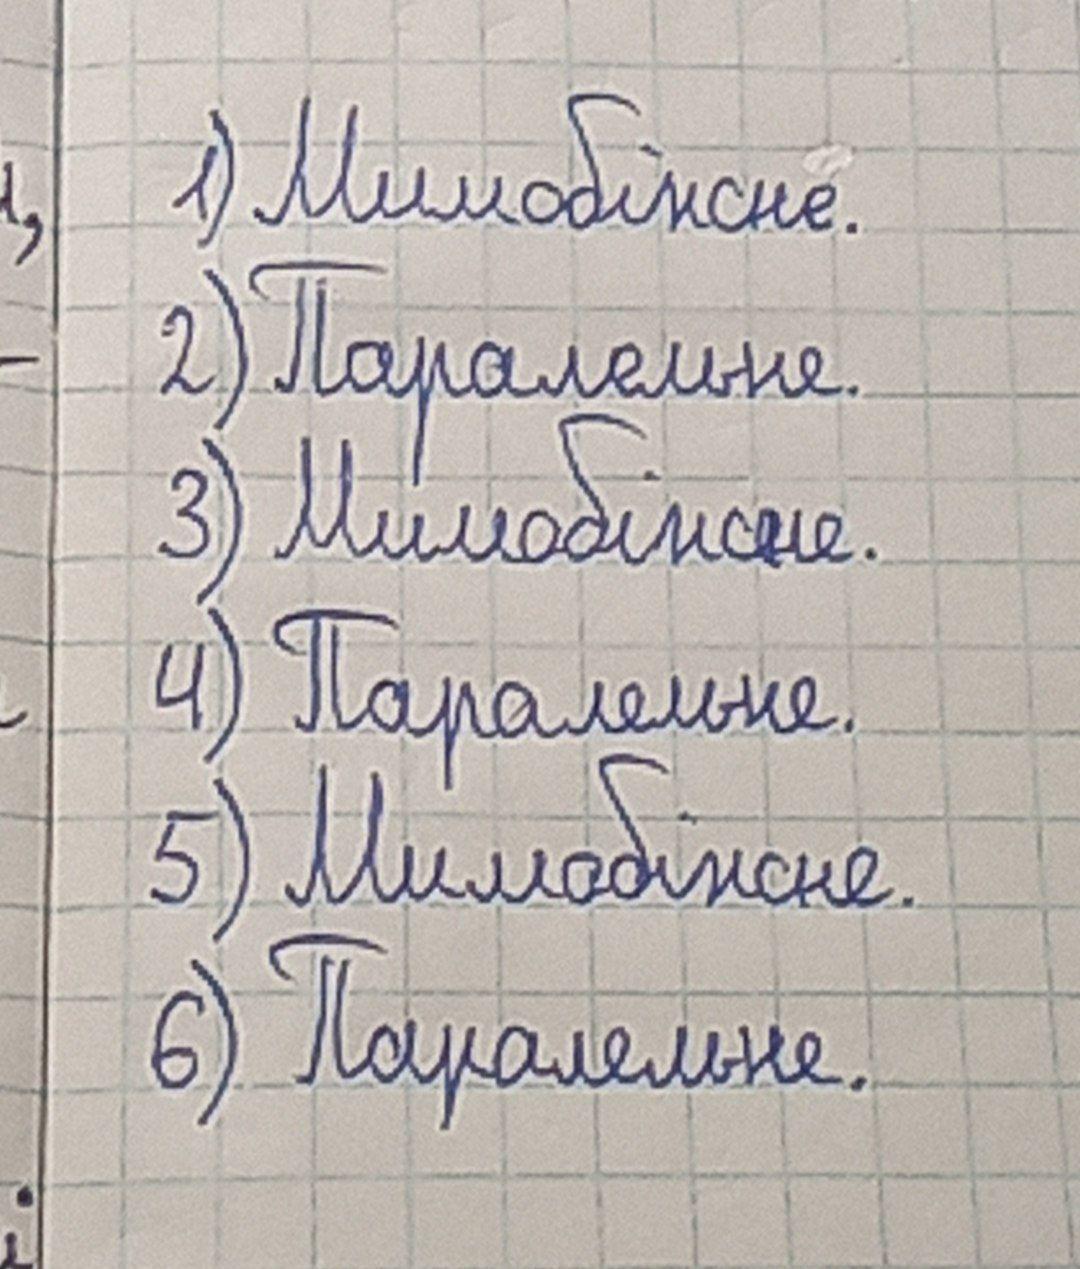 1) Мимобіжне.
2) Паралельне.
3) Мимобіжне.
4) Паралельне.
5) Мимобіжне.
6) Паралельне.